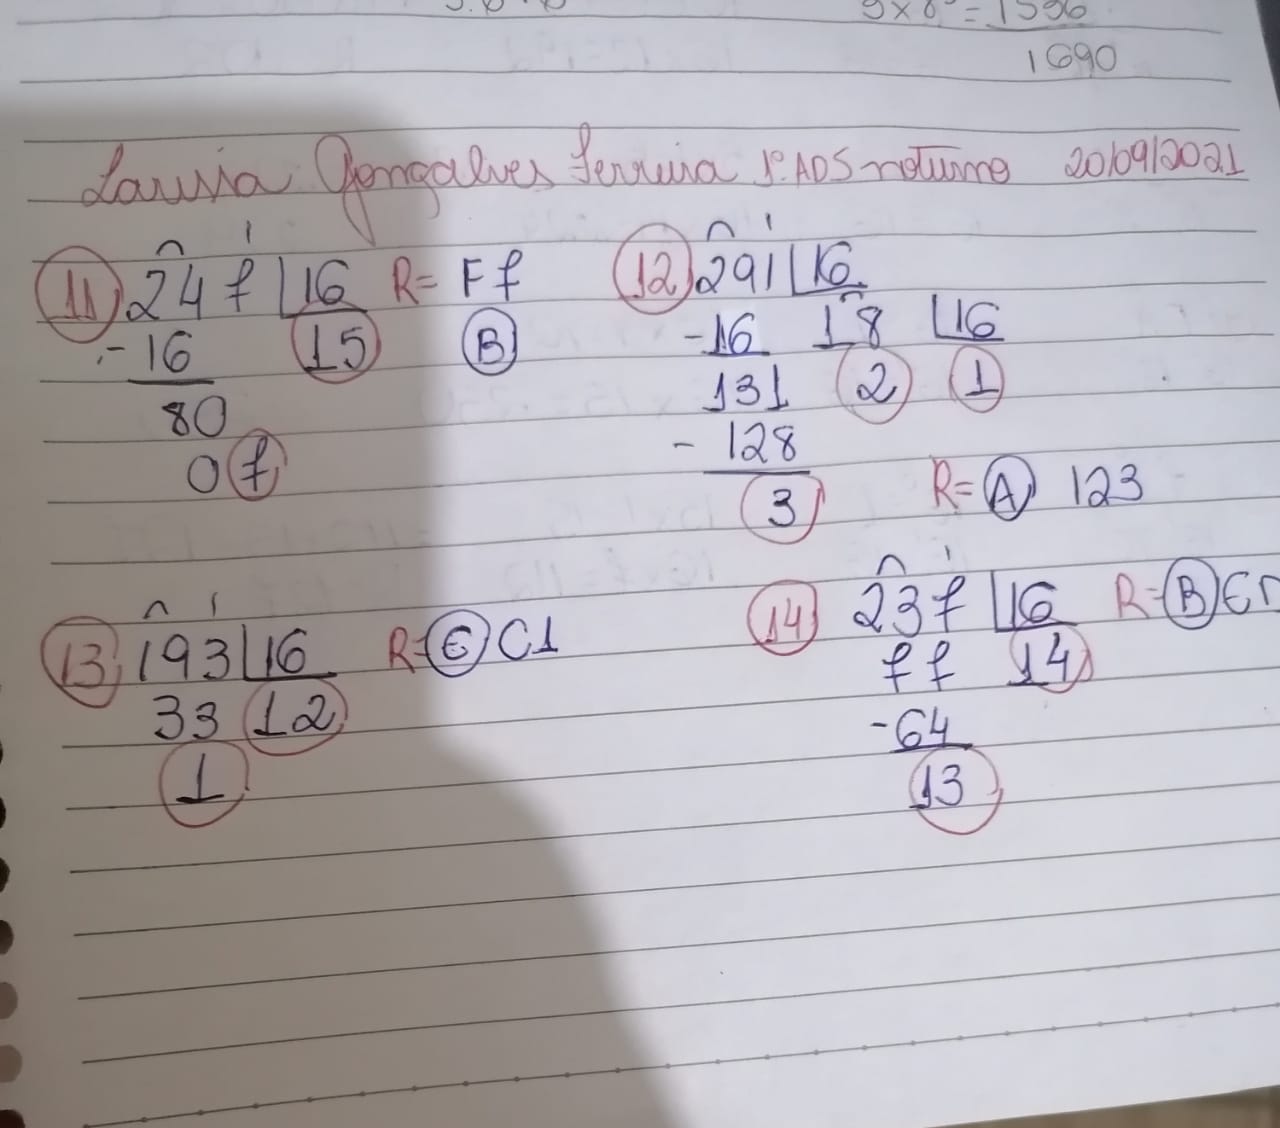 9x8 = 1536
1690
Larissa Gonçalves Ferreira 1º ADS noturno 20/09/2021
11) 247 |16 R= F7
-16 15 B
80
07
12) 291 |16
-16 18 |16
131 2 1
-128
3 R= A 123
13) 193 |16 R= E C1
33 12
1
14) 237 |16 R= B
77 14
-64
13